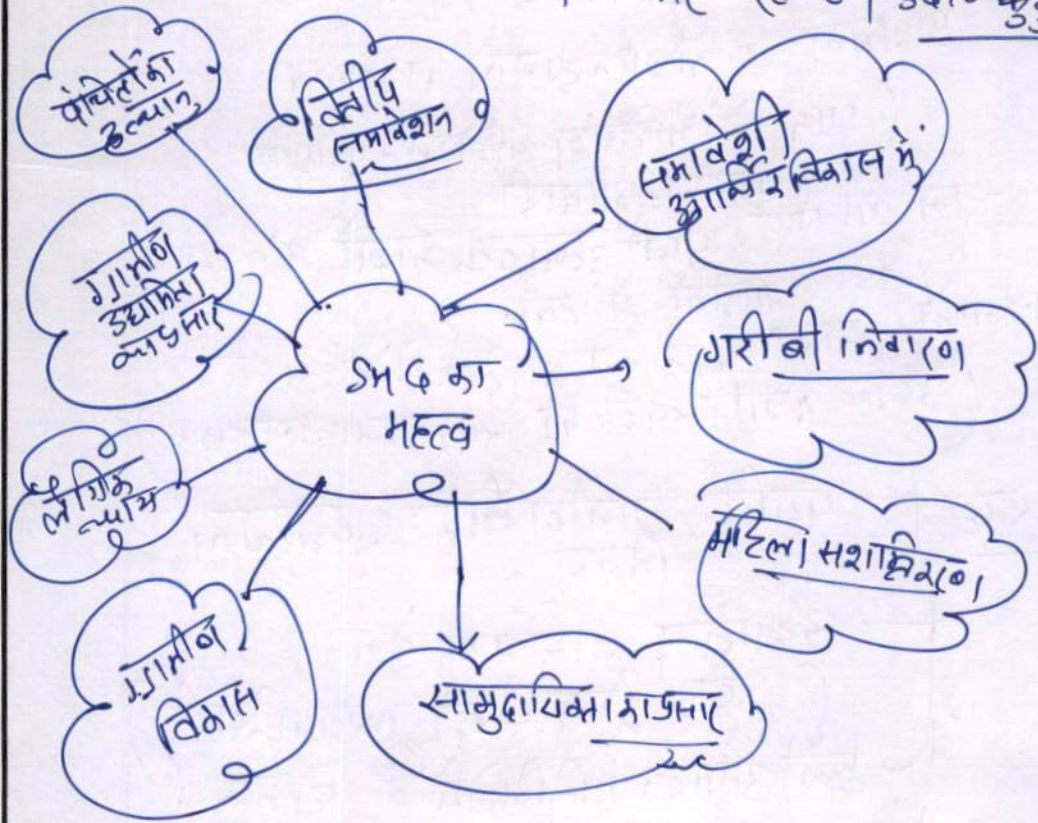 वंचितों का
उत्थान
वित्तीय
समावेशन
समावेशी
आर्थिक विकास में
ग्रामीण
उद्यमिता
का प्रसार
SHG का
महत्व
गरीबी निवारण
लैंगिक
न्याय
महिला सशक्तिकरण
ग्रामीण
विकास
सामुदायिकता का प्रसार